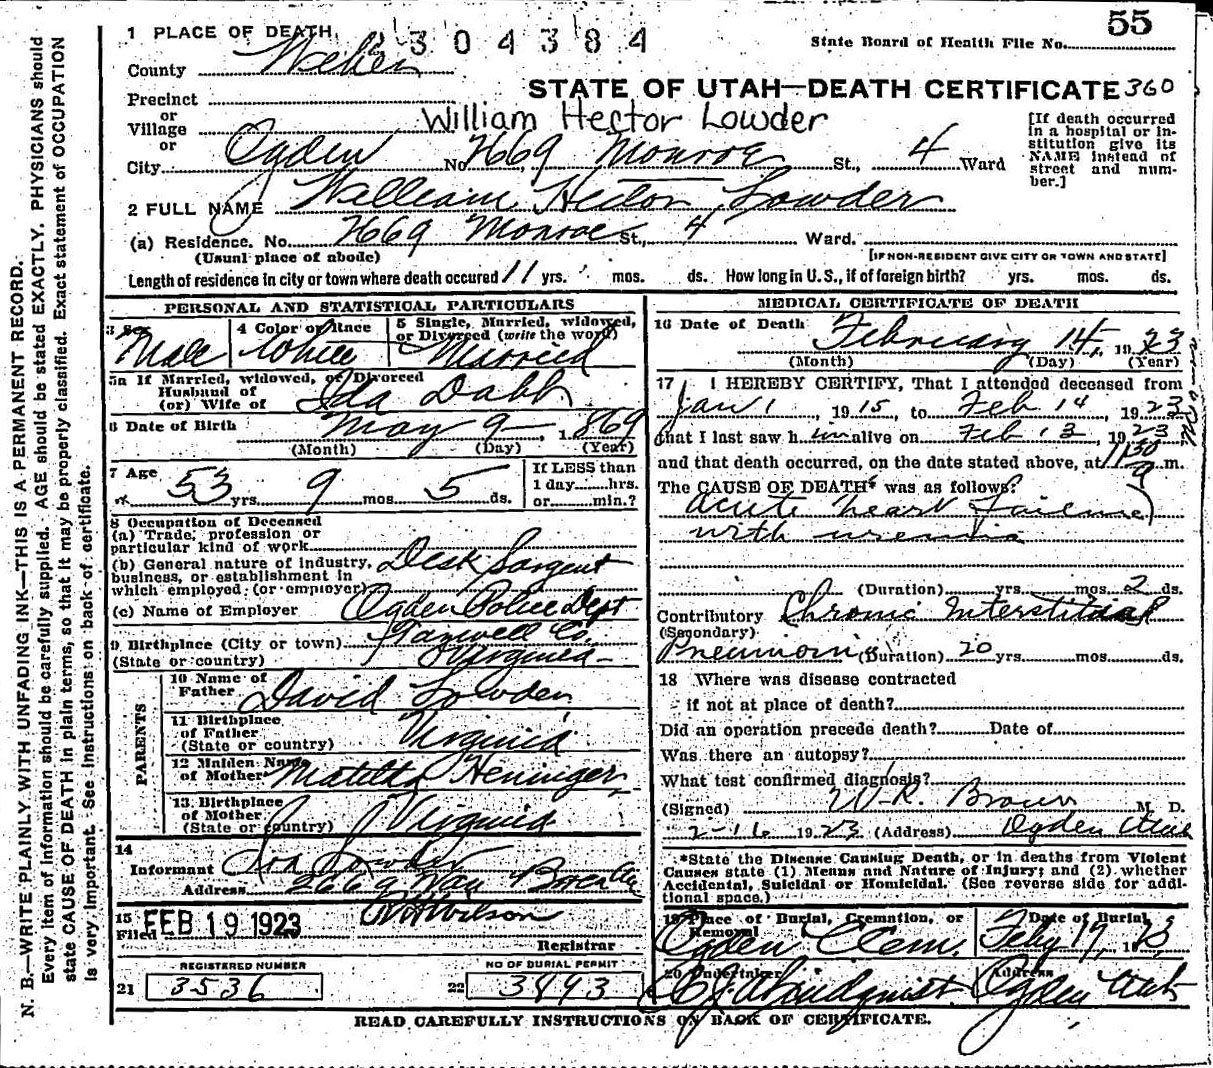 55
1 PLACE OF DEATH 2304384
State Board of Health File No.
County Weber
STATE OF UTAH—DEATH CERTIFICATE 360
Precinct
or
Village
William Hector Lowder
or
City Ogden No. 2669 Monroe St., 4 Ward
[If death occurred in a hospital or institution give its NAME instead of street and number.]
2 FULL NAME William Hector Lowder
(a) Residence. No. 2669 Monroe St., 4 Ward.
(Usual place of abode) [IF NON-RESIDENT GIVE CITY OR TOWN AND STATE]
Length of residence in city or town where death occured 11 yrs. mos. ds. How long in U.S., if of foreign birth? yrs. mos. ds.
PERSONAL AND STATISTICAL PARTICULARS
3 Sex Male
4 Color or Race White
5 Single, Married, widowed, or Divorced (write the word) Married
5a If Married, widowed, or Divorced
Husband of
(or) Wife of Ida Dabb
6 Date of Birth May 9 1869
(Month) (Day) (Year)
7 Age 53 yrs. 9 mos. 5 ds.
If LESS than
1 day hrs.
or min.?
8 Occupation of Deceased
(a) Trade, profession or
particular kind of work
(b) General nature of industry,
business, or establishment in
which employed (or employer) Desk Sargent
(c) Name of Employer Ogden Police Dept
9 Birthplace (City or town) Tazwell Co.
(State or country) Virginia
PARENTS
10 Name of
Father David Lowder
11 Birthplace
of Father
(State or country) Virginia
12 Maiden Name
of Mother Matilda Heninger
13 Birthplace
of Mother
(State or country) Virginia
14
Informant Ida Lowder
Address 2669
15
Filed FEB 19 1923 Wilson
Registrar
REGISTERED NUMBER
21 3536
NO OF BURIAL PERMIT
22 3893
MEDICAL CERTIFICATE OF DEATH
16 Date of Death February 14, 1923
(Month) (Day) (Year)
17 I HEREBY CERTIFY, That I attended deceased from
Jan 1, 1915, to Feb 14, 1923
that I last saw him alive on Feb 13, 1923
and that death occurred, on the date stated above, at 1130 m.
The CAUSE OF DEATH* was as follows:
acute heart Failure
with uremia
(Duration) yrs. mos. 2 ds.
Contributory Chronic Interstitial
(Secondary)
Pneumonia (Duration) 20 yrs. mos. ds.
18 Where was disease contracted
if not at place of death?
Did an operation precede death? Date of
Was there an autopsy?
What test confirmed diagnosis?
(Signed) W. R. Brown M. D.
2-16 1923 (Address) Ogden Utah
*State the Disease Causing Death, or in deaths from Violent
Causes state (1) Means and Nature of Injury; and (2) whether
Accidental, Suicidal or Homicidal. (See reverse side for addi-
tional space.)
19 Place of Burial, Cremation, or
Removal
Ogden Cem.
Date of Burial
Feby 17, 1923
20 Undertaker
Lindquist
Address
Ogden Utah
READ CAREFULLY INSTRUCTIONS ON BACK OF CERTIFICATE.
N. B.—WRITE PLAINLY WITH UNFADING INK—THIS IS A PERMANENT RECORD.
Every item of information should be carefully supplied. AGE should be stated EXACTLY. PHYSICIANS should
state CAUSE OF DEATH in plain terms, so that it may be properly classified. Exact statement of OCCUPATION
is very important. See instructions on back of certificate.